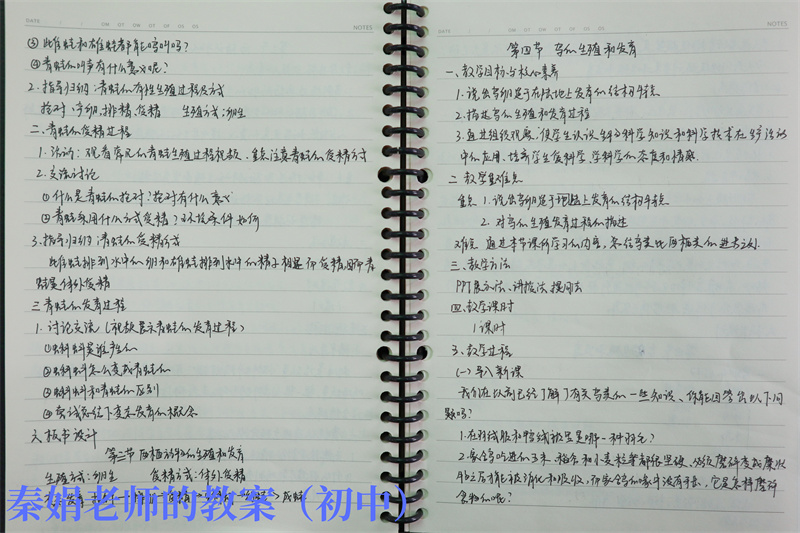 DATE
NOTES
③ 雌雄蛙和雄蛙都能鸣叫吗?
④ 青蛙的叫声有什么意义呢?
2. 指导归纳:青蛙的有性生殖过程及方式
抱对、产卵、排精、受精 生殖方式:卵生
二、青蛙的受精过程
1. 活动:观看常见的青蛙生殖过程视频、重点注意青蛙的受精方式
2. 交流讨论
① 什么是青蛙的抱对?抱对有什么意义
② 青蛙采用什么方式受精?环境条件如何
3. 指导归纳:青蛙的受精方式
雌蛙排到水中的卵和雄蛙排到水中的精子相遇而受精,因而青
蛙是体外受精
三、青蛙的发育过程
1. 讨论交流(视频展示青蛙的发育过程)
① 蝌蚪是谁产的
② 蝌蚪怎么变成青蛙的
③ 蝌蚪和青蛙的区别
④ 尝试总结下变态发育的概念
六、板书设计
第三节 两栖动物的生殖和发育
生殖方式:卵生 受精方式:体外受精
秦娟老师的教案(初中)
DATE
NOTES
第四节 鸟的生殖和发育
一、教学目标与核心素养
1. 说出鸟卵适于在陆地上发育的结构特点
2. 描述鸟的生殖和发育过程
3. 通过组织观察,使学生认识到科学知识和科学技术在生活
中的应用,培养学生爱科学、学科学的态度和情感.
二、教学重难点
重点 1. 说出鸟卵适于陆地上发育的结构特点
2. 对鸟的生殖发育过程的描述
难点 通过本节课所学习的内容,总结鸟类比两栖类的进步之处.
三、教学方法
PPT展示法、讲授法、提问法
四、教学课时
1课时
五、教学过程
(一) 导入新课
我们在以前已经了解了有关鸟类的一些知识、你能回答出以下问
题吗?
1. 在羽绒服和鸭绒被里是哪一种羽毛?
2. 家鸽吃进的玉米、稻谷和小麦粒等都很坚硬、必须磨碎变成糜状
之后才能被消化和吸收,而家鸽的喙中没有牙齿,它是怎样磨碎
食物的呢?